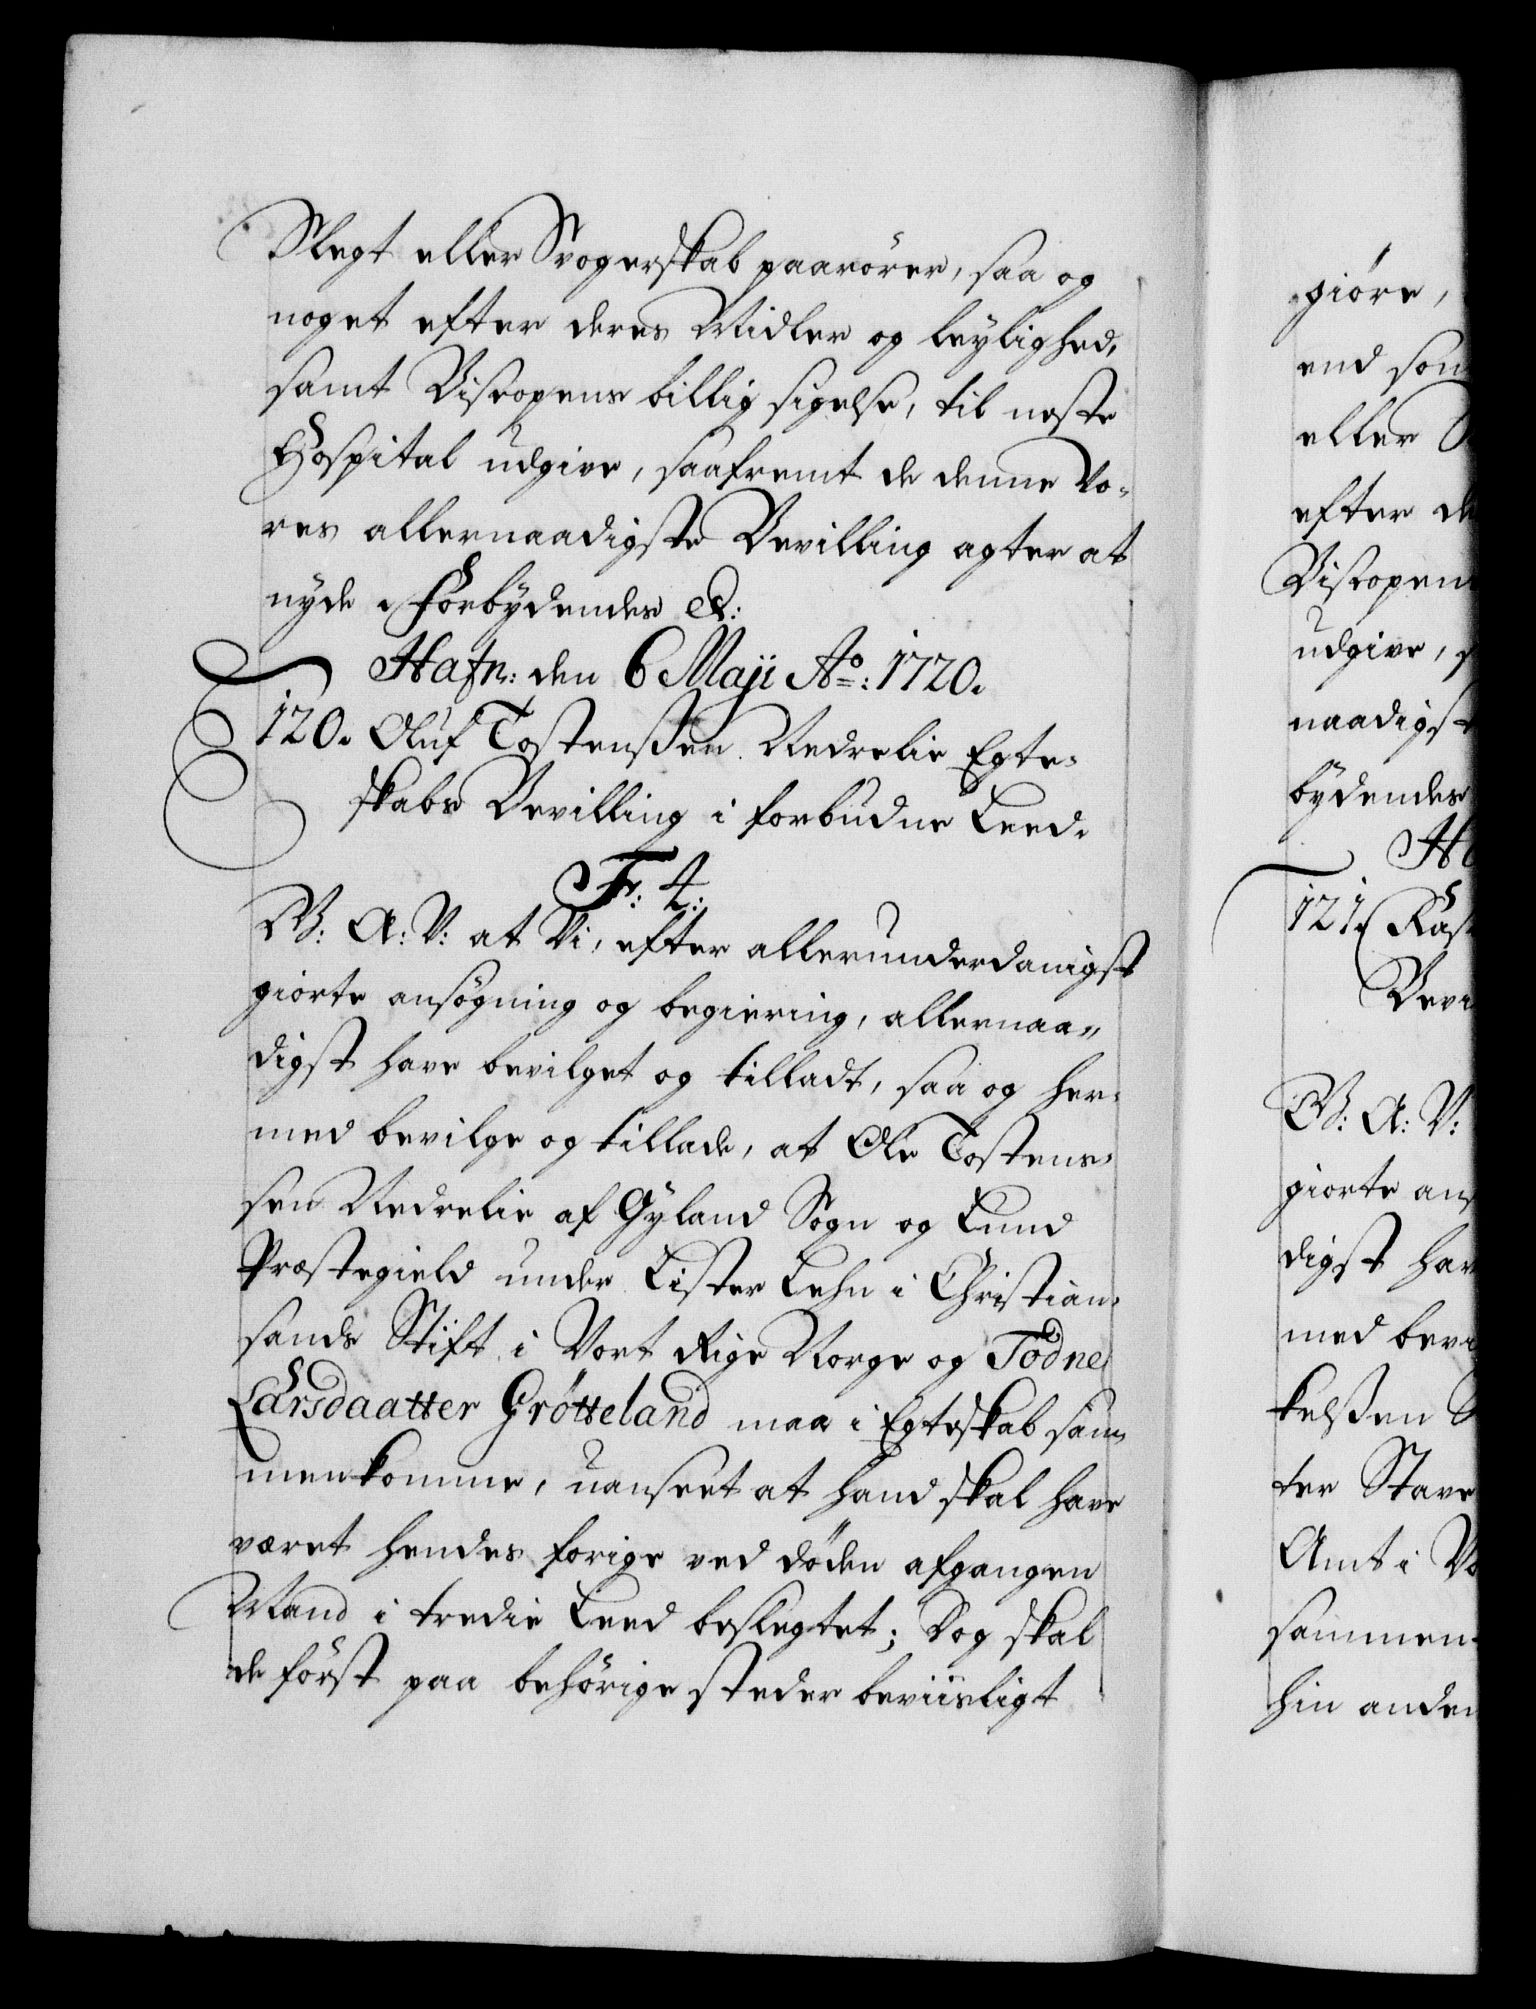 Slegt eller Svogerskab paarörer, saa og
noget efter deres Midler og leylighed,
samt Biscopens billig sigelse, til neste
Hospital udgive, saafremt de denne Vo-
res allernaadigste Bevilling agter at
nyde. Forbydendes &:
Hafn: den 6 Maji Ao: 1720.
120. Oluf Tostenßen Nedrelie Egte-
skabs Bevilling i forbudne Leed.
F: 4:
G: A: V: at Vi, efter allerunderdanigst
giorte ansögning og begiering, allernaa-
digst have bevilget og tilladt, saa og her-
med bevilge og tillade, at Ole Tostens-
sen Nedrelie af Gyland Sogn og Lund
Præstegield under Lister Lehn i Christian-
sands Stift i Vort Rige Norge og Todne
Larsdaatter Grötteland maa i Egteskab sam-
menkomme, uanseet at hand skal have
været hendes forige ved döden afgangen
Mand i tredie Leed beslegtet; Dog skal
de först paa behörige steder beviisligt
giöre,
end som
eller
efter de
Biscopens
udgive, s
naadigst
bydendes
Ha
121. Ras
Bevi
G: A: V:
giorte ans
digst hav
med bevi
kelßen S
ter Stave
Amt i Vo
sammen
hin anden